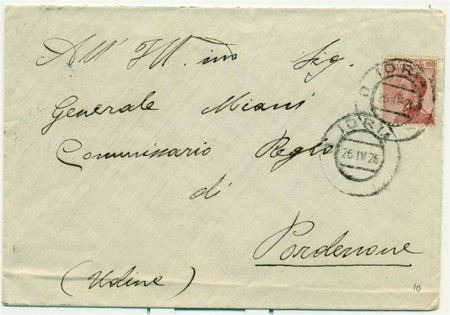 All' Ill.mo Sig.
Generale Miani
Commissario Regio
di
Pordenone
(Udine)
IDRIA
26 IV 26
10